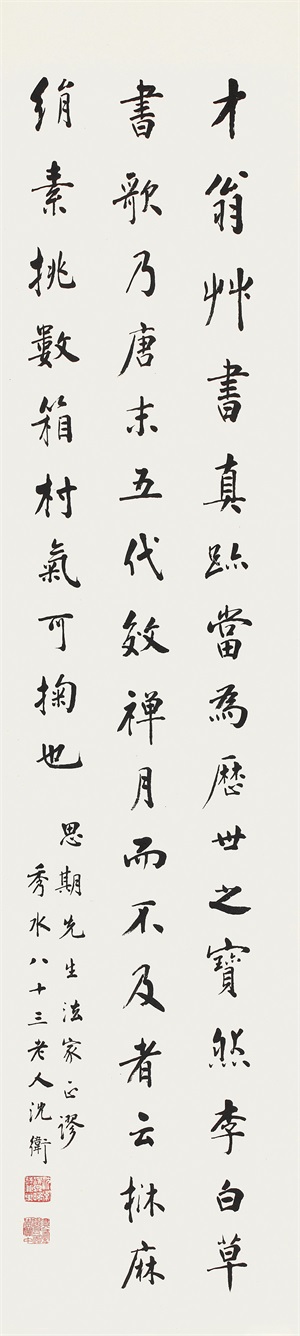 才翁艸書真跡當為歷世之寶然李白草
書歌乃唐末五代效禪月而不及者云牀麻
絹素挑數箱村氣可掬也
思期先生法家正謬
秀水八十三老人沈衛